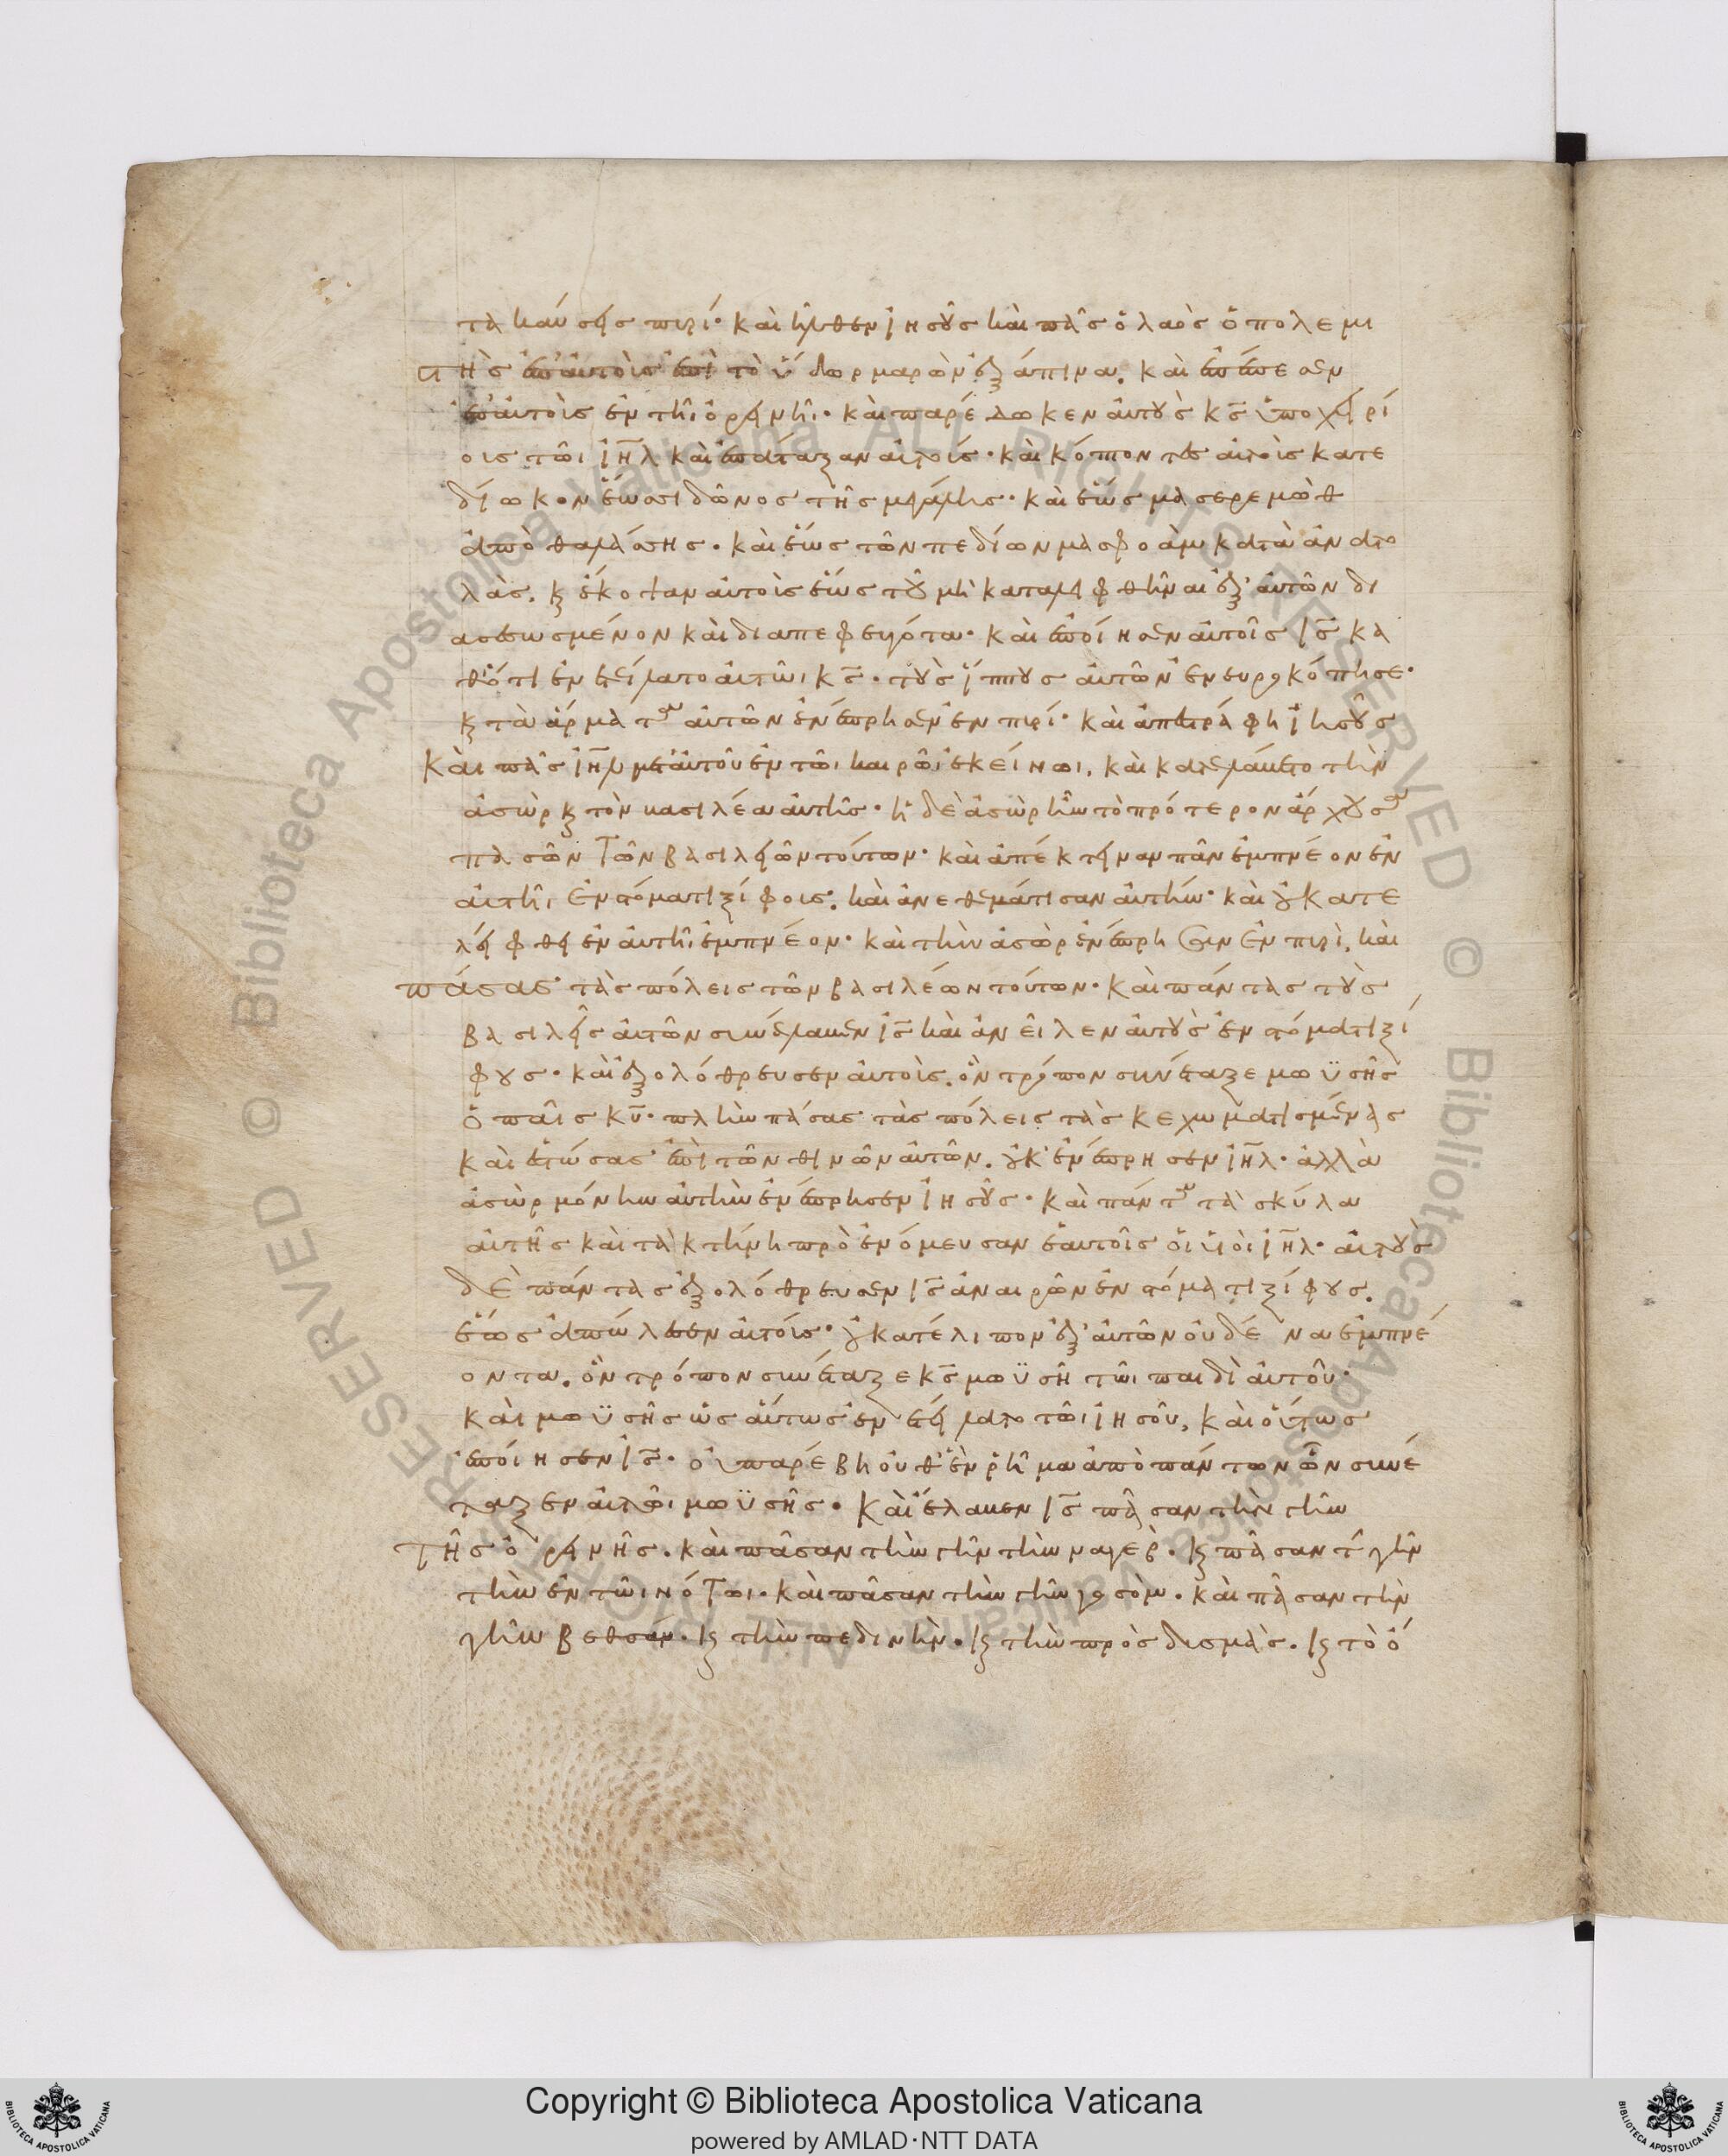 τακαύσεις πυρί· καὶ ἦλθεν ἰησοῦς καὶ πᾶς ὁ λαὸς ὁ πολεμι
στὴς ἐπ' αὐτοὺς ἐπὶ τὸ ὕδωρ μαρὼν ἐξάπινα. καὶ ἐπέπεσεν
ἐπ' αὐτοὺς ἐν τῆι ὀρεινῆι· καὶ παρέδωκεν αὐτοὺς κς ὑποχειρί
ους τῶι ιηλ καὶ ἐπάταξαν αὐτούς· καὶ κόπτοντες αὐτοὺς κατε
δίωκον ἕως σιδῶνος τῆς μεγάλης· καὶ ἕως μασερεμὼθ
ἀπὸ θαλάσσης· καὶ ἕως τῶν πεδίων μασφοὰμ κατὰ ἀνατο
λάς. κ ἔκοψαν αὐτοὺς ἕως τοῦ μὴ καταλειφθῆναι ἐξ αὐτῶν δι
ασεσωσμένον καὶ διαπεφευγότα· καὶ ἐποίησεν αὐτοῖς ις κα
θότι ἐνετείλατο αὐτῶι κς· τοὺς ἵππους αὐτῶν ἐνευροκόπησε·
κ τὰ ἅρματα αὐτῶν ἐνέπρησεν ἐν πυρί· καὶ ἀπεστράφη ἰησοῦς
καὶ πᾶς ιηλ μετ' αὐτοῦ ἐν τῶι καιρῶι ἐκείνωι, καὶ κατελάβετο τὴν
ἀσὼρ κ τὸν βασιλέα αὐτῆς· ἡ δὲ ἀσὼρ ἦν τὸ πρότερον ἄρχουσα
πασῶν τῶν βασιλειῶν τούτων· καὶ ἀπέκτειναν πᾶν ἐμπνέον ἐν
αὐτῆι ἐν στόματι ξίφους. καὶ ἀνεθεμάτισαν αὐτήν· καὶ οὐ κατε
λείφθη ἐν αὐτῆι ἐμπνέον· καὶ τὴν ἀσὼρ ἐνέπρησεν ἐν πυρὶ, καὶ
πάσας τὰς πόλεις τῶν βασιλέων τούτων· καὶ πάντας τοὺς
βασιλεῖς αὐτῶν συνέλαβεν ις καὶ ἀνεῖλεν αὐτοὺς ἐν στόματι ξί
φους· καὶ ἐξολόθρευσεν αὐτούς. ὃν τρόπον συνέταξε μωϋσῆς
ὁ παῖς κυ· πλὴν πάσας τὰς πόλεις τὰς κεχωματισμένας
καὶ ἑστώσας ἐπὶ τῶν θινῶν αὐτῶν. οὐκ ἐνέπρησεν ιηλ· ἀλλὰ
ἀσὼρ μόνην αὐτὴν ἐνέπρησεν ἰησοῦς· καὶ πάντα τὰ σκύλα
αὐτῆς καὶ τὰ κτήνη προενόμευσαν ἑαυτοῖς οἱ υἱοὶ ιηλ· αὐτοὺς
δὲ πάντας ἐξολόθρευσεν ις ἀναιρῶν ἐν στόματι ξίφους.
ἕως ἀπώλεσεν αὐτούς· οὐ κατέλιπον ἐξ αὐτῶν οὐδένα ἐμπνέ
οντα. ὃν τρόπον συνέταξε κς μωϋσῆ τῶι παιδὶ αὐτοῦ·
καὶ μωϋσῆς ὡσαύτως ἐνετείλατο τῶι ἰησοῦ, καὶ οὕτως
ἐποίησεν ις· οὐ παρέβη οὐθὲν ῥῆμα ἀπὸ πάντων ὧν συνέ
ταξεν αὐτῶι μωϋσῆς· καὶ ἔλαβεν ις πᾶσαν τὴν γῆν
τῆς ὀρεινῆς. καὶ πᾶσαν τὴν γῆν τὴν ναγέβ. κ πᾶσαν τ γῆν
τὴν ἐν τῶι νότωι· καὶ πᾶσαν τὴν γῆν γοσὸμ. καὶ πᾶσαν τὴν
γῆν βεθσάν. κ τὴν πεδινὴν. κ τὴν πρὸς δυσμὰς. κ τὸ ὄ
Copyright © Biblioteca Apostolica Vaticana
powered by AMLAD·NTT DATA